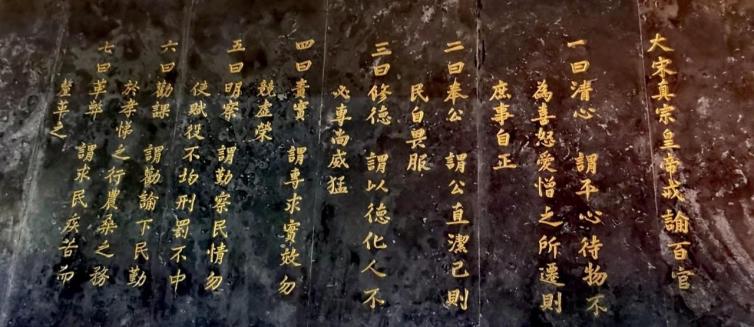 大宋真宗皇帝戒諭百官
一曰清心 謂平心待物不
為喜怒愛憎之所遷則
庶事自正
二曰奉公 謂公直潔己則
民自畏服
三曰修德 謂以德化人不
必專尚威猛
四曰責實 謂專求實效勿
競虛榮
五曰明察 謂勤察民情勿
使賦役不均刑罰不中
六曰勸課 謂勸諭下民勤
於孝悌之行農桑之務
七曰革弊 謂求民疾苦而
釐革之